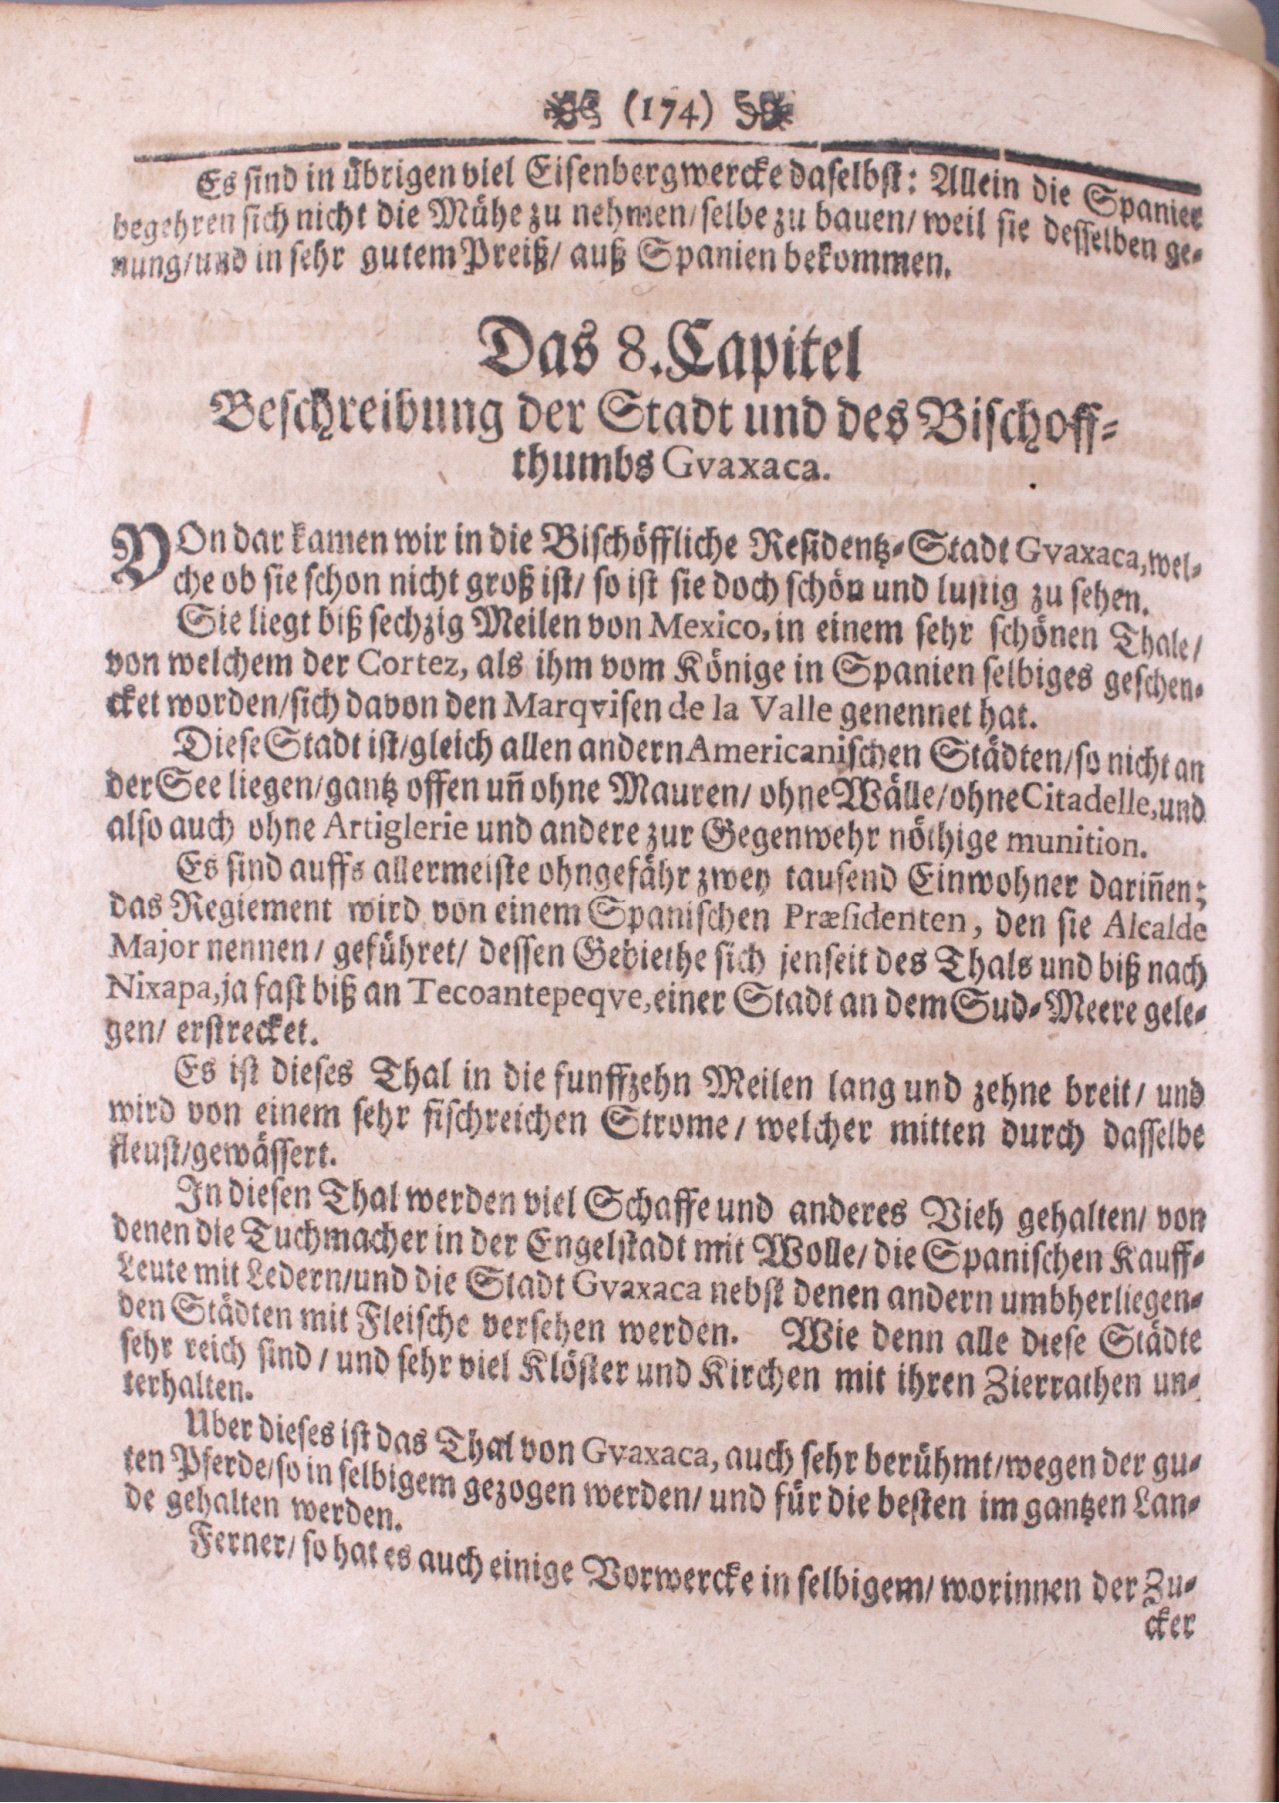 (174)
Es sind in übrigen viel Eisenbergwercke daselbst: Allein die Spanier
begehren sich nicht die Mühe zu nehmen/ selbe zu bauen/ weil sie desselben ge-
nung/ und in sehr gutem Preiß/ auß Spanien bekommen.
Das 8. Capitel
Beschreibung der Stadt und des Bischoff-
thumbs Gvaxaca.
VOn dar kamen wir in die Bischöffliche Residentz-Stadt Gvaxaca, wel-
che ob sie schon nicht groß ist/ so ist sie doch schön und lustig zu sehen.
Sie liegt biß sechzig Meilen von Mexico, in einem sehr schönen Thale/
von welchem der Cortez, als ihm vom Könige in Spanien selbiges geschen-
cket worden/ sich davon den Marqvisen de la Valle genennet hat.
Diese Stadt ist/ gleich allen andern Americanischen Städten/ so nicht an
der See liegen/ gantz offen uñ ohne Mauren/ ohne Wälle/ ohne Citadelle, und
also auch ohne Artiglerie und andere zur Gegenwehr nöthige munition.
Es sind auffs allermeiste ohngefähr zwey tausend Einwohner dariñen;
das Regiement wird von einem Spanischen Præsidenten, den sie Alcalde
Major nennen/ geführet/ dessen Gebiethe sich jenseit des Thals und biß nach
Nixapa, ja fast biß an Tecoantepeqve, einer Stadt an dem Sud-Meere gele-
gen/ erstrecket.
Es ist dieses Thal in die funffzehn Meilen lang und zehne breit/ und
wird von einem sehr fischreichen Strome/ welcher mitten durch dasselbe
fleust/ gewässert.
In diesen Thal werden viel Schaffe und anderes Vieh gehalten/ von
denen die Tuchmacher in der Engelstadt mit Wolle/ die Spanischen Kauff-
Leute mit Ledern/ und die Stadt Gvaxaca nebst denen andern umbherliegen-
den Städten mit Fleische versehen werden. Wie denn alle diese Städte
sehr reich sind/ und sehr viel Klöster und Kirchen mit ihren Zierrathen un-
terhalten.
Uber dieses ist das Thal von Gvaxaca, auch sehr berühmt/ wegen der gu-
ten Pferde/ so in selbigem gezogen werden/ und für die besten im gantzen Lan-
de gehalten werden.
Ferner/ so hat es auch einige Vorwercke in selbigem/ worinnen der Zu-
cker